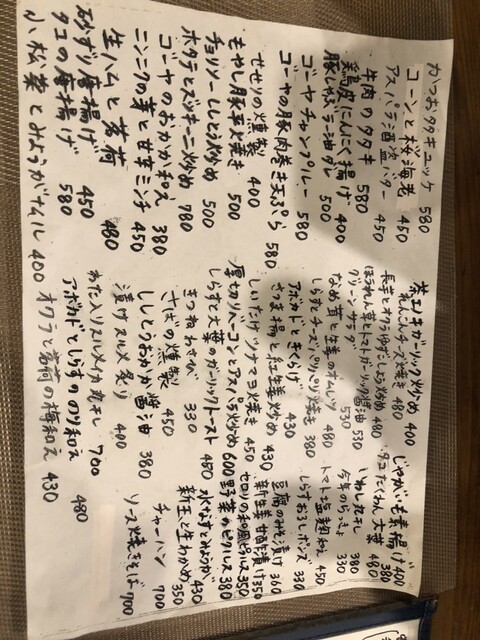 かつおタタキユッケ 580
コーンと桜海老 450
アスパラ酒盗バター 450
牛肉のタタキ 580
鶏皮にんにく揚げ 400
豚しゃぶラー油ダレ 500
ゴーヤチャンプルー 580
ゴーヤの豚肉巻き天ぷら 580
せせりの燻製 400
もやし豚平焼き 500
チョリソーとししとう炒め 500
ホタテとズッキーニ炒め 780
ゴーヤのおかか和え 380
ニンニクの芽と甘辛ミンチ 450
生ハムと茗荷 480
砂ずり唐揚げ 450
タコの唐揚げ 580
小松菜とみょうがナムル 400
茶エリンギガーリック炒め 400
れんこんチーズ焼き 480
長芋とオクラゆずこしょう炒め 480
ほうれん草とトマトガーリック醤油 530
グリーンサラダ 530
なめ茸と生姜のオムレツ 480
しらすとチーズパリパリ焼き 380
アボカドときくらげ 430
さつま揚と紅生姜炒め 430
しいたけツナマヨ焼き 450
厚切りベーコンとアスパラ炒め 600
しらすと大葉のガーリックトースト 450
きつねわさび 330
さばの燻製 450
ししとうおかか醤油 380
漬けスルメ炙り 400
わた入りスルメイカ丸干し 700
アボカドとしらすののり和え 480
オクラと茗荷の梅和え 430
じゃがいも素揚げ 400
大葉 380
いわし丸干し 380
今年のらっきょ 330
トマト塩麹和え 450
しらすおろしポンズ 330
豆腐のみそ漬け 360
新生姜甘酢漬け 350
セロリの和風ピクルス 350
野菜のピクルス 380
水なすとみょうが 430
新玉と生わかめ 350
チャーハン 700
ソース焼きそば 700